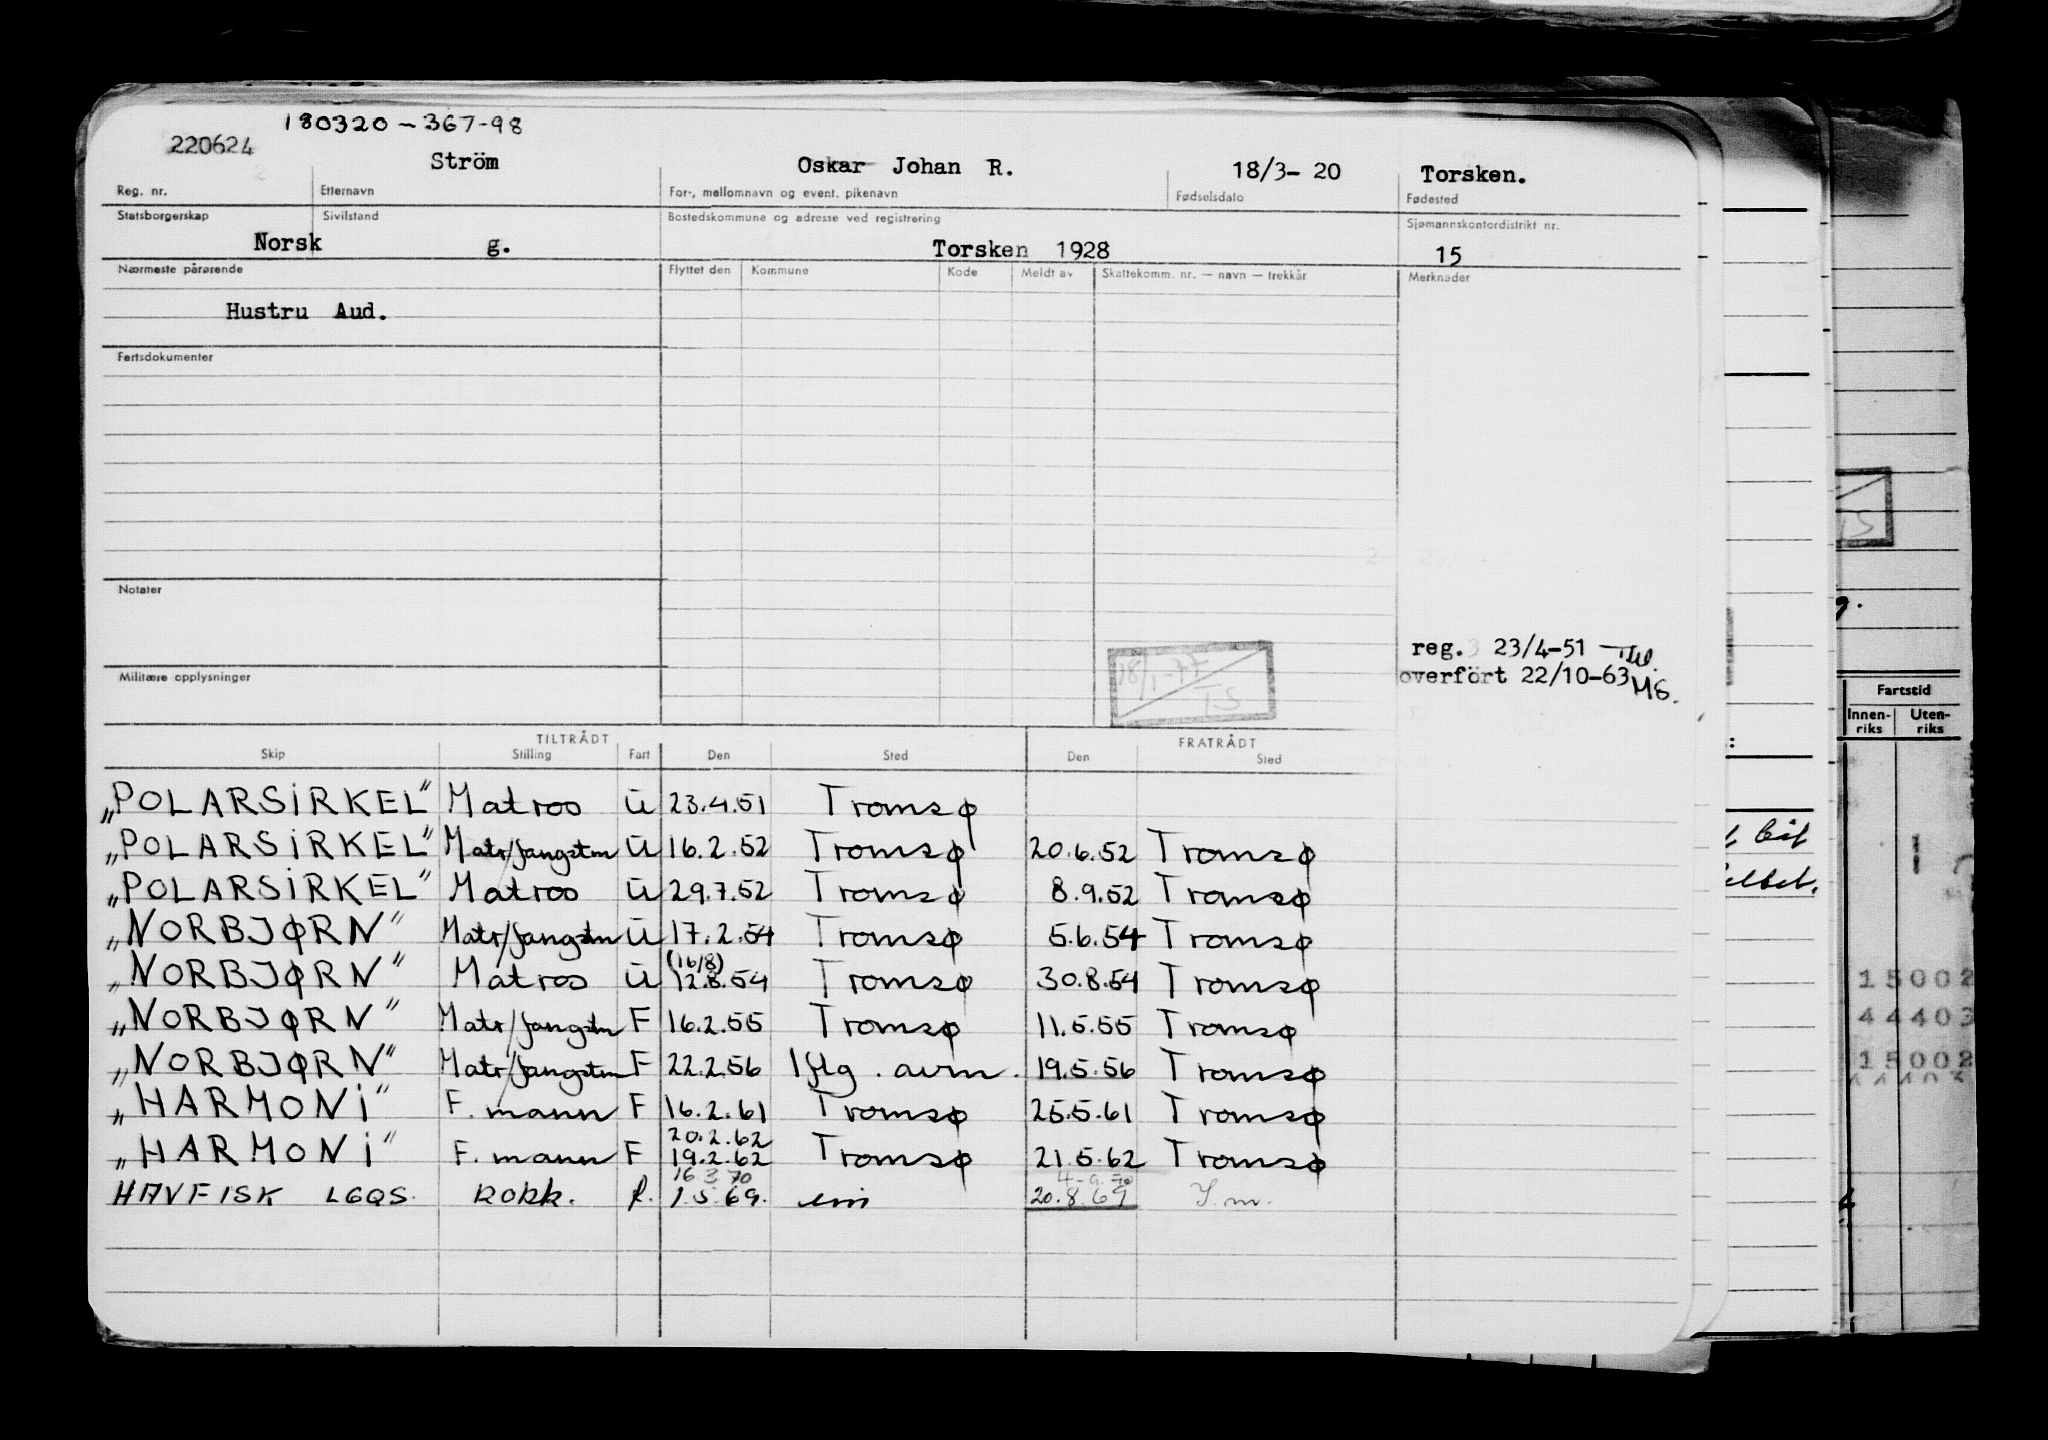 180320-367-98
220624 Ström Oskar Johan R. 18/3-20 Torsken.
Reg. nr. Etternavn For-, mellomnavn og event. pikenavn Fødselsdato Fødested
Statsborgerskap Sivilstand Bostedskommune og adresse ved registrering Sjømannskontordistrikt nr.
Norsk g. Torsken 1928 15
Nærmeste pårørende Flyttet den Kommune Kode Meldt av Skattekomm. nr. — navn — trekkår Merknader
Hustru Aud.
Fartsdokumenter
Notater
reg. 23/4-51
Militære opplysninger overfört 22/10-63 MS.
18/1-77
TS
TILTRÅDT FRATRÅDT
Skip Stilling Fart Den Sted Den Sted
„POLARSIRKEL" Matros U 23.4.51 Tromsø
„POLARSIRKEL" Matr/fangstm U 16.2.52 Tromsø 20.6.52 Tromsø
„POLARSIRKEL" Matros U 29.7.52 Tromsø 8.9.52 Tromsø
„NORBJØRN" Matr/fangstm U 17.2.54 Tromsø 5.6.54 Tromsø
(16/8)
„NORBJØRN" Matros U 12.8.54 Tromsø 30.8.54 Tromsø
„NORBJØRN" Matr/fangstm F 16.2.55 Tromsø 11.5.55 Tromsø
„NORBJØRN" Matr/fangstm F 22.2.56 Iflg. avm. 19.5.56 Tromsø
„HARMONI" F. mann F 16.2.61 Tromsø 25.5.61 Tromsø
20.2.62
„HARMONI" F. mann F 19.2.62 Tromsø 21.5.62 Tromsø
16 3 70
HAVFISK LGQS. Kokk. f. 1.5.69. 20.8.69
Fartstid
Innen- Uten-
riks riks
15002
44403
15002